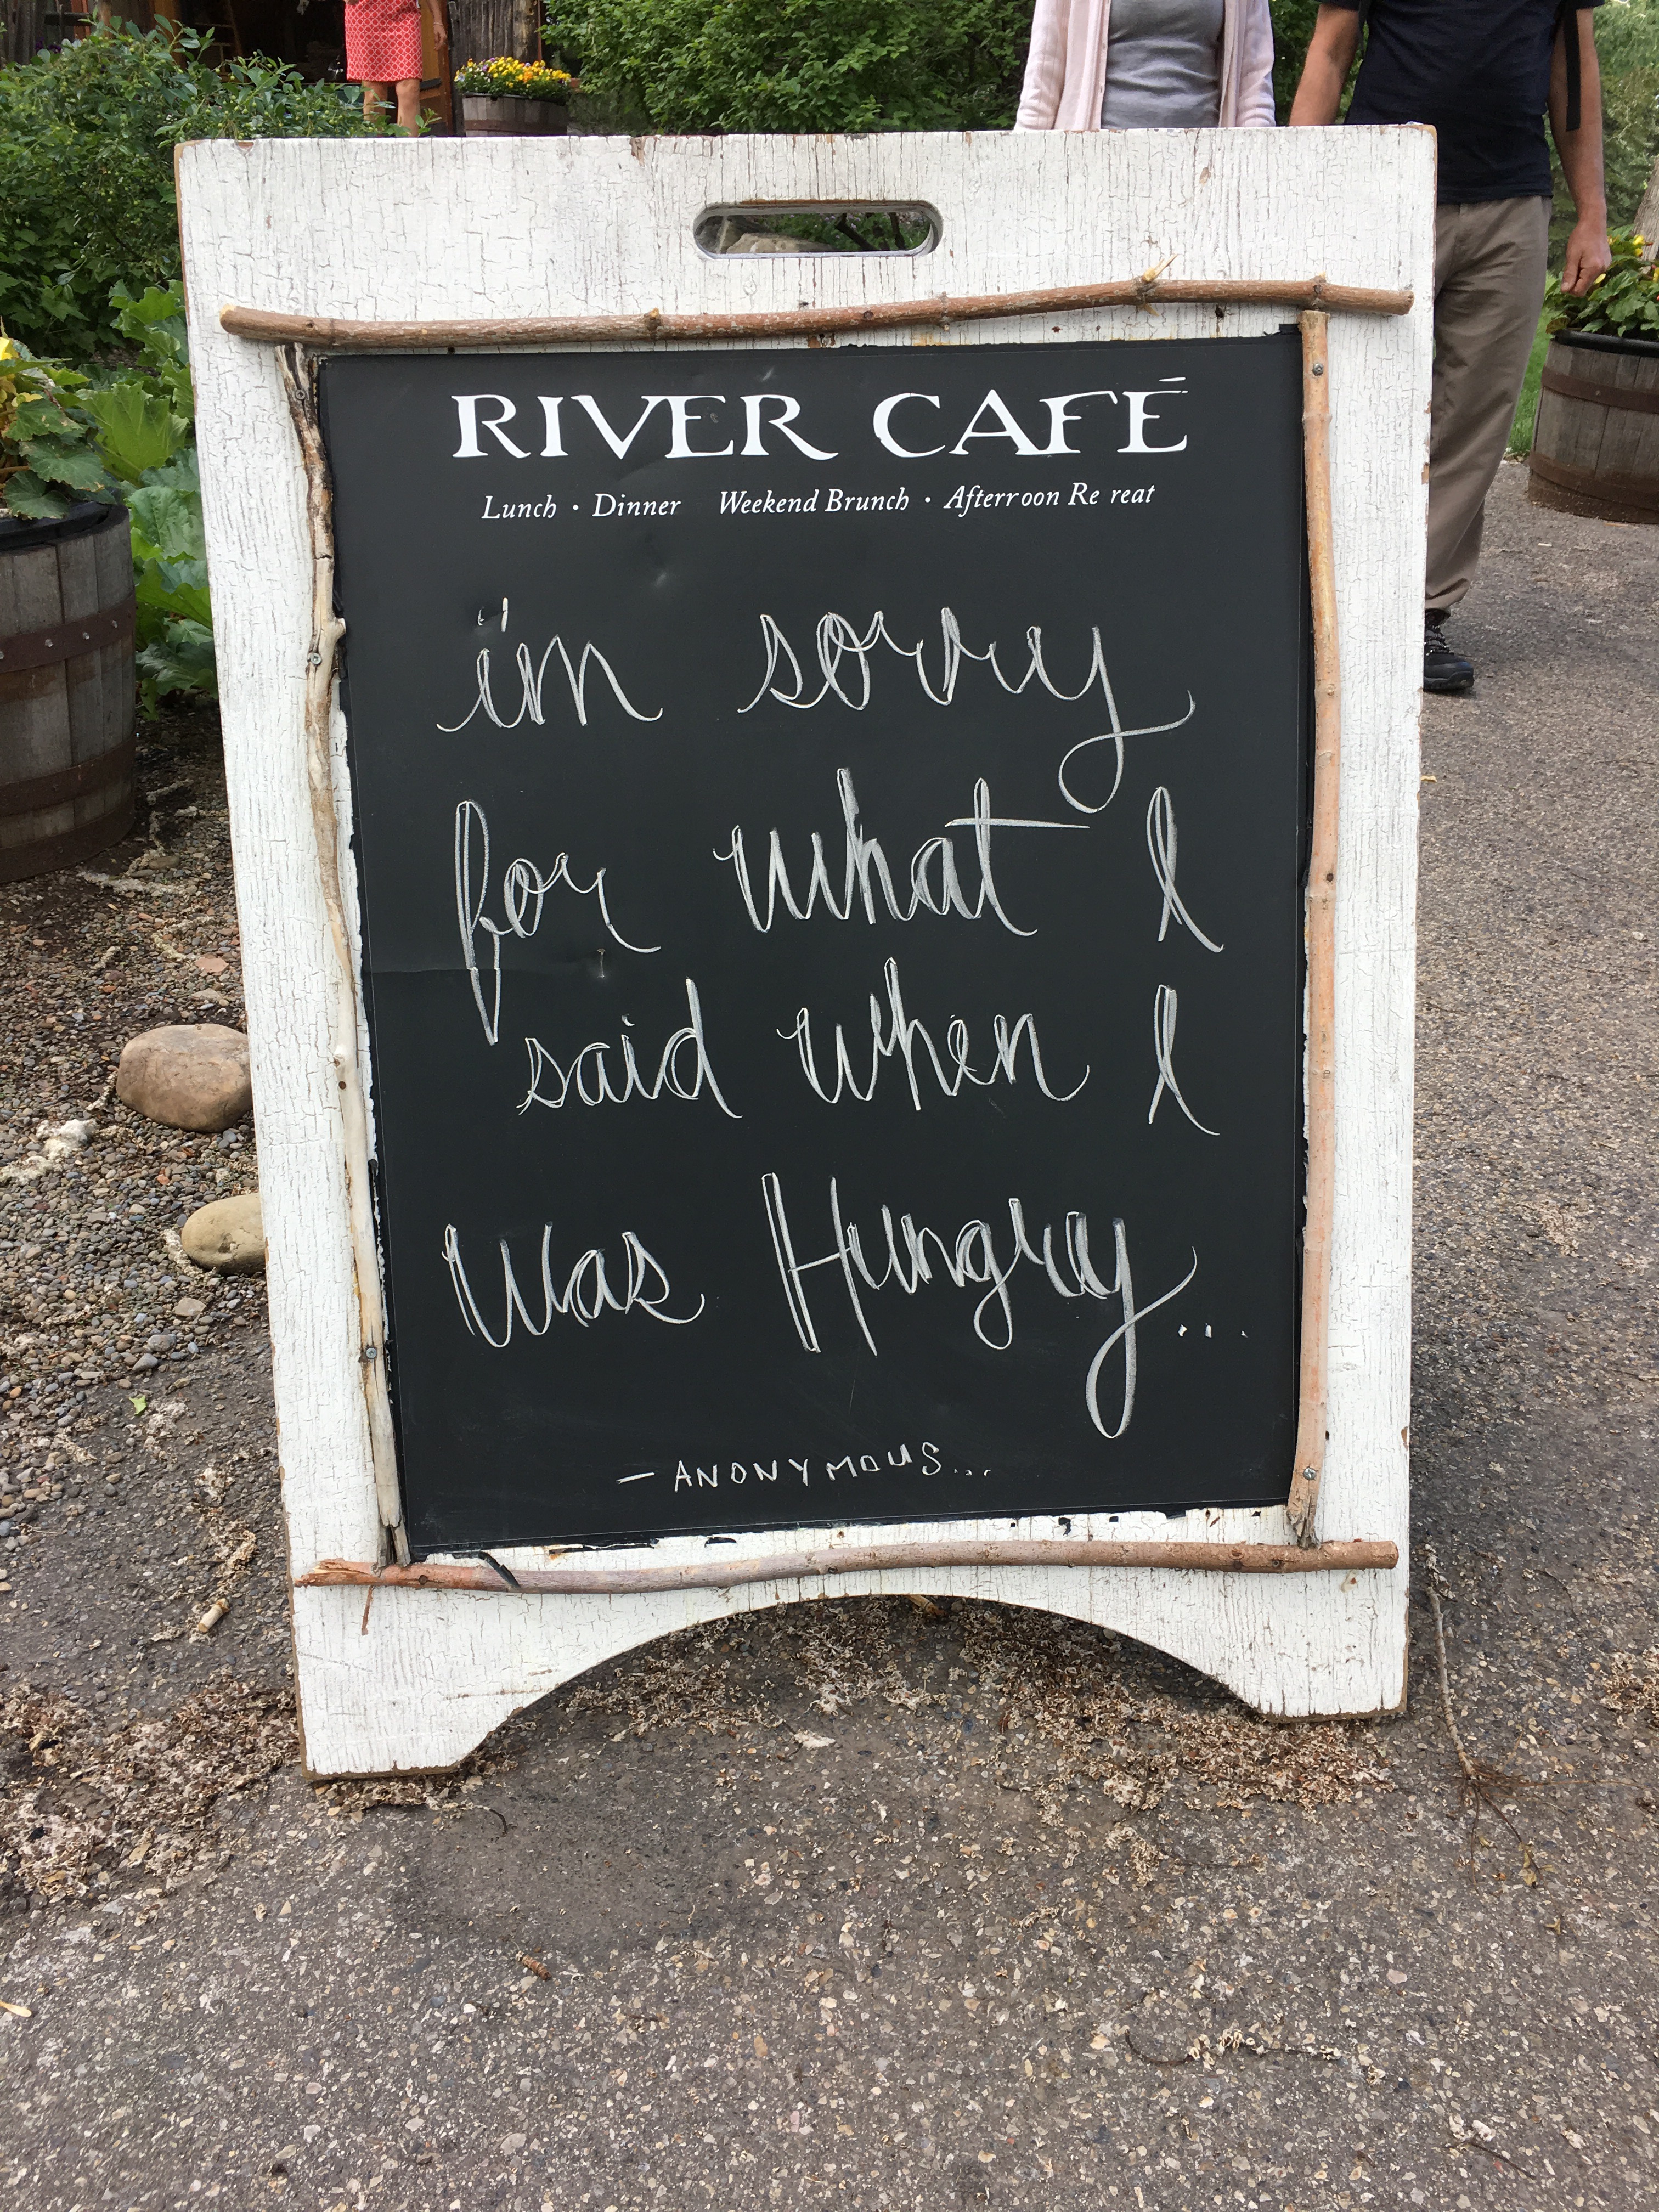 RIVER CAFÉ
Lunch · Dinner Weekend Brunch · Afterroon Re reat
i'm sorry
for what I
said when I
was Hungry...
- ANONYMOUS...